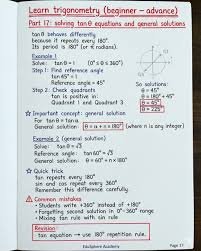 Learn trigonometry (beginner - advance)
Part 17: solving tan θ equations and general solutions
tan θ behaves differently
because it repeats every 180°.
Its period is 180° (or π radians).
Example 1
Solve: tan θ = 1 (0° ≤ θ ≤ 360°)
Step 1: Find reference angle
tan 45° = 1
Reference angle = 45°
Step 2: Check tan quadrants
tan is positive in:
Quadrant 1 and Quadrant 3
So solutions:
θ = 45°
θ = 225°
Important concept: general solution
For tan θ = tan α
General solution: θ = α + n × 180° (where n is any integer)
Example 2
Solve: tan θ = √3
Reference angle = 60°
General solution: θ = 60° + n × 180°
Quick trick
tan repeats every 180°
sin and cos repeat every 360°
Remember this difference carefully
Common mistakes
• Students write +360° instead of +180°
• Forgetting second solution in 0°-360° range
• Mixing tan rule with sin rule
Revision:
tan equation → use 180° repetition rule.
EduSphere Academy
Page 17